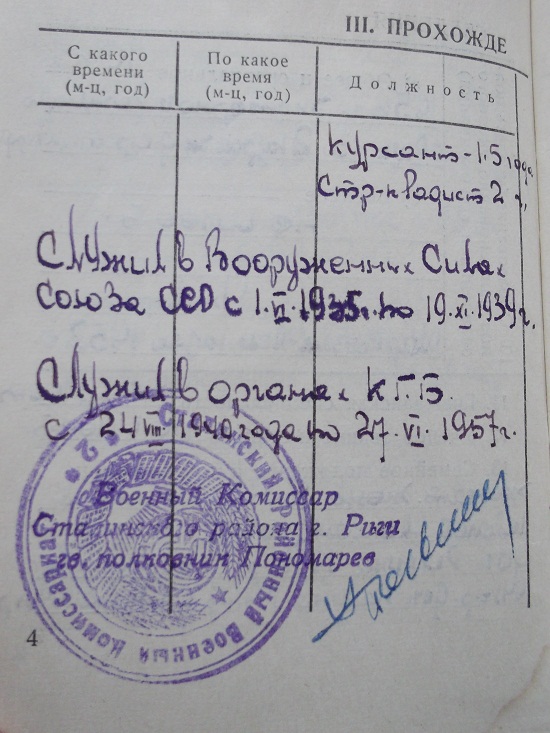 III. ПРОХОЖДЕ
С какого
времени
(м-ц, год)
По какое
время
(м-ц, год)
Должность
Курсант - 1.5 года
Стр-к радист 2 г.
Служил в Вооруженных Силах
Союза ССР с 1.VI.1935г. по 19.XI.1939г.
Служил в органах КГБ.
с 24 VIII 1940 года по 27.VI.1957г.
Военный Комиссар
Сталинского района г. Риги
гв. полковник Пономарев
Сталинский Районный Военный Комиссариат
4